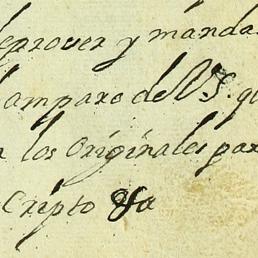 eprover y manda
amparo de V.S. q
los originales par
cripto &a